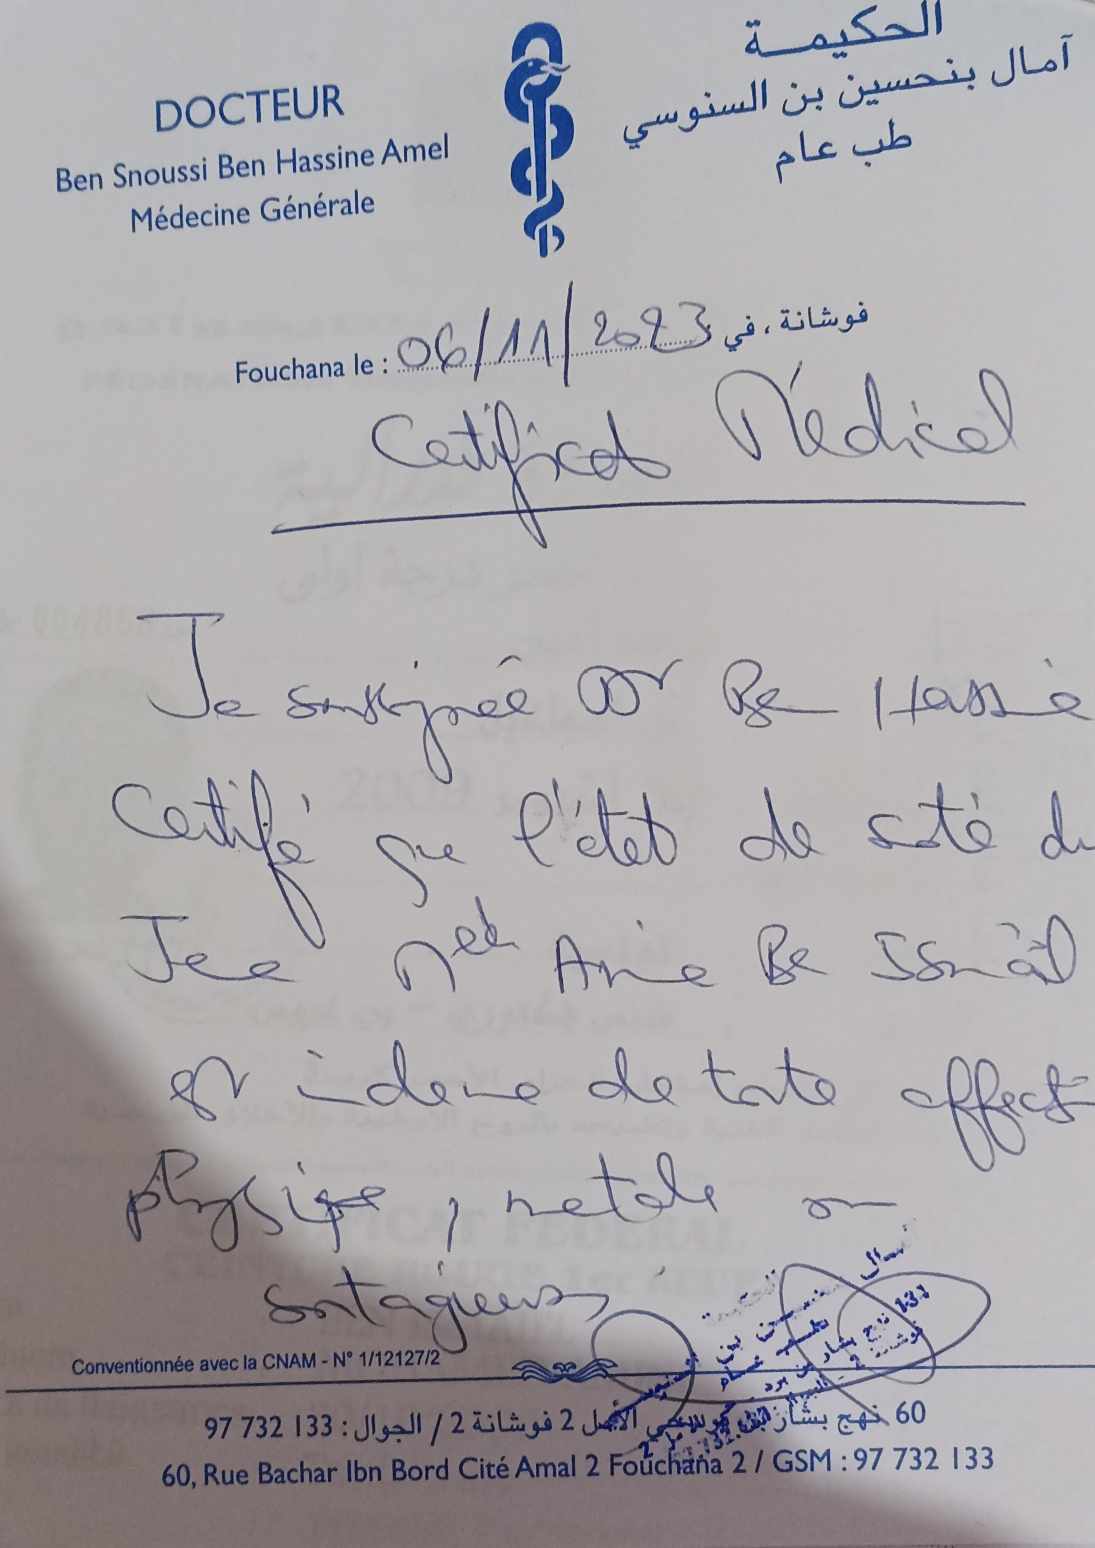 DOCTEUR
Ben Snoussi Ben Hassine Amel
Médecine Générale
الحكيمة
آمال بنحسين بن السنوسي
طب عام
Fouchana le : 06/11/2023 فوشانة ، في
Certificat Médical
Je soussignée Dr Ben Hassine
Certifie que l'état de santé du
Jeune Med Amine Ben Ismail
est indemne de toute affection
physique, mentale ou
contagieuse
Conventionnée avec la CNAM - N° 1/12127/2
60 نهج بشار بن برد حي الأمل 2 فوشانة 2 / الجوال : 97 732 133
60, Rue Bachar Ibn Bord Cité Amal 2 Fouchana 2 / GSM : 97 732 133